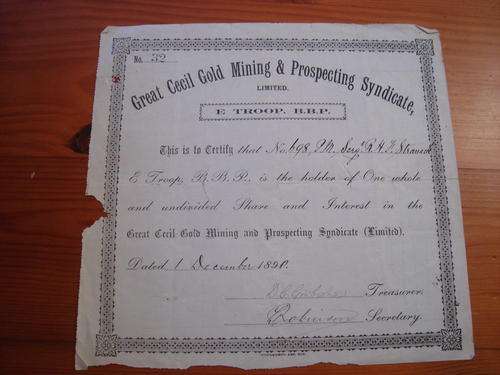 No. 32
Great Cecil Gold Mining & Prospecting Syndicate,
LIMITED.
E TROOP, B.B.P.
This is to Certify that No. 698, Serjt
E Troop, B. B. P., is the holder of One whole
and undivided Share and Interest in the
Great Cecil Gold Mining and Prospecting Syndicate (Limited).
Dated 1 December 1890.
Treasurer.
Robinson Secretary.